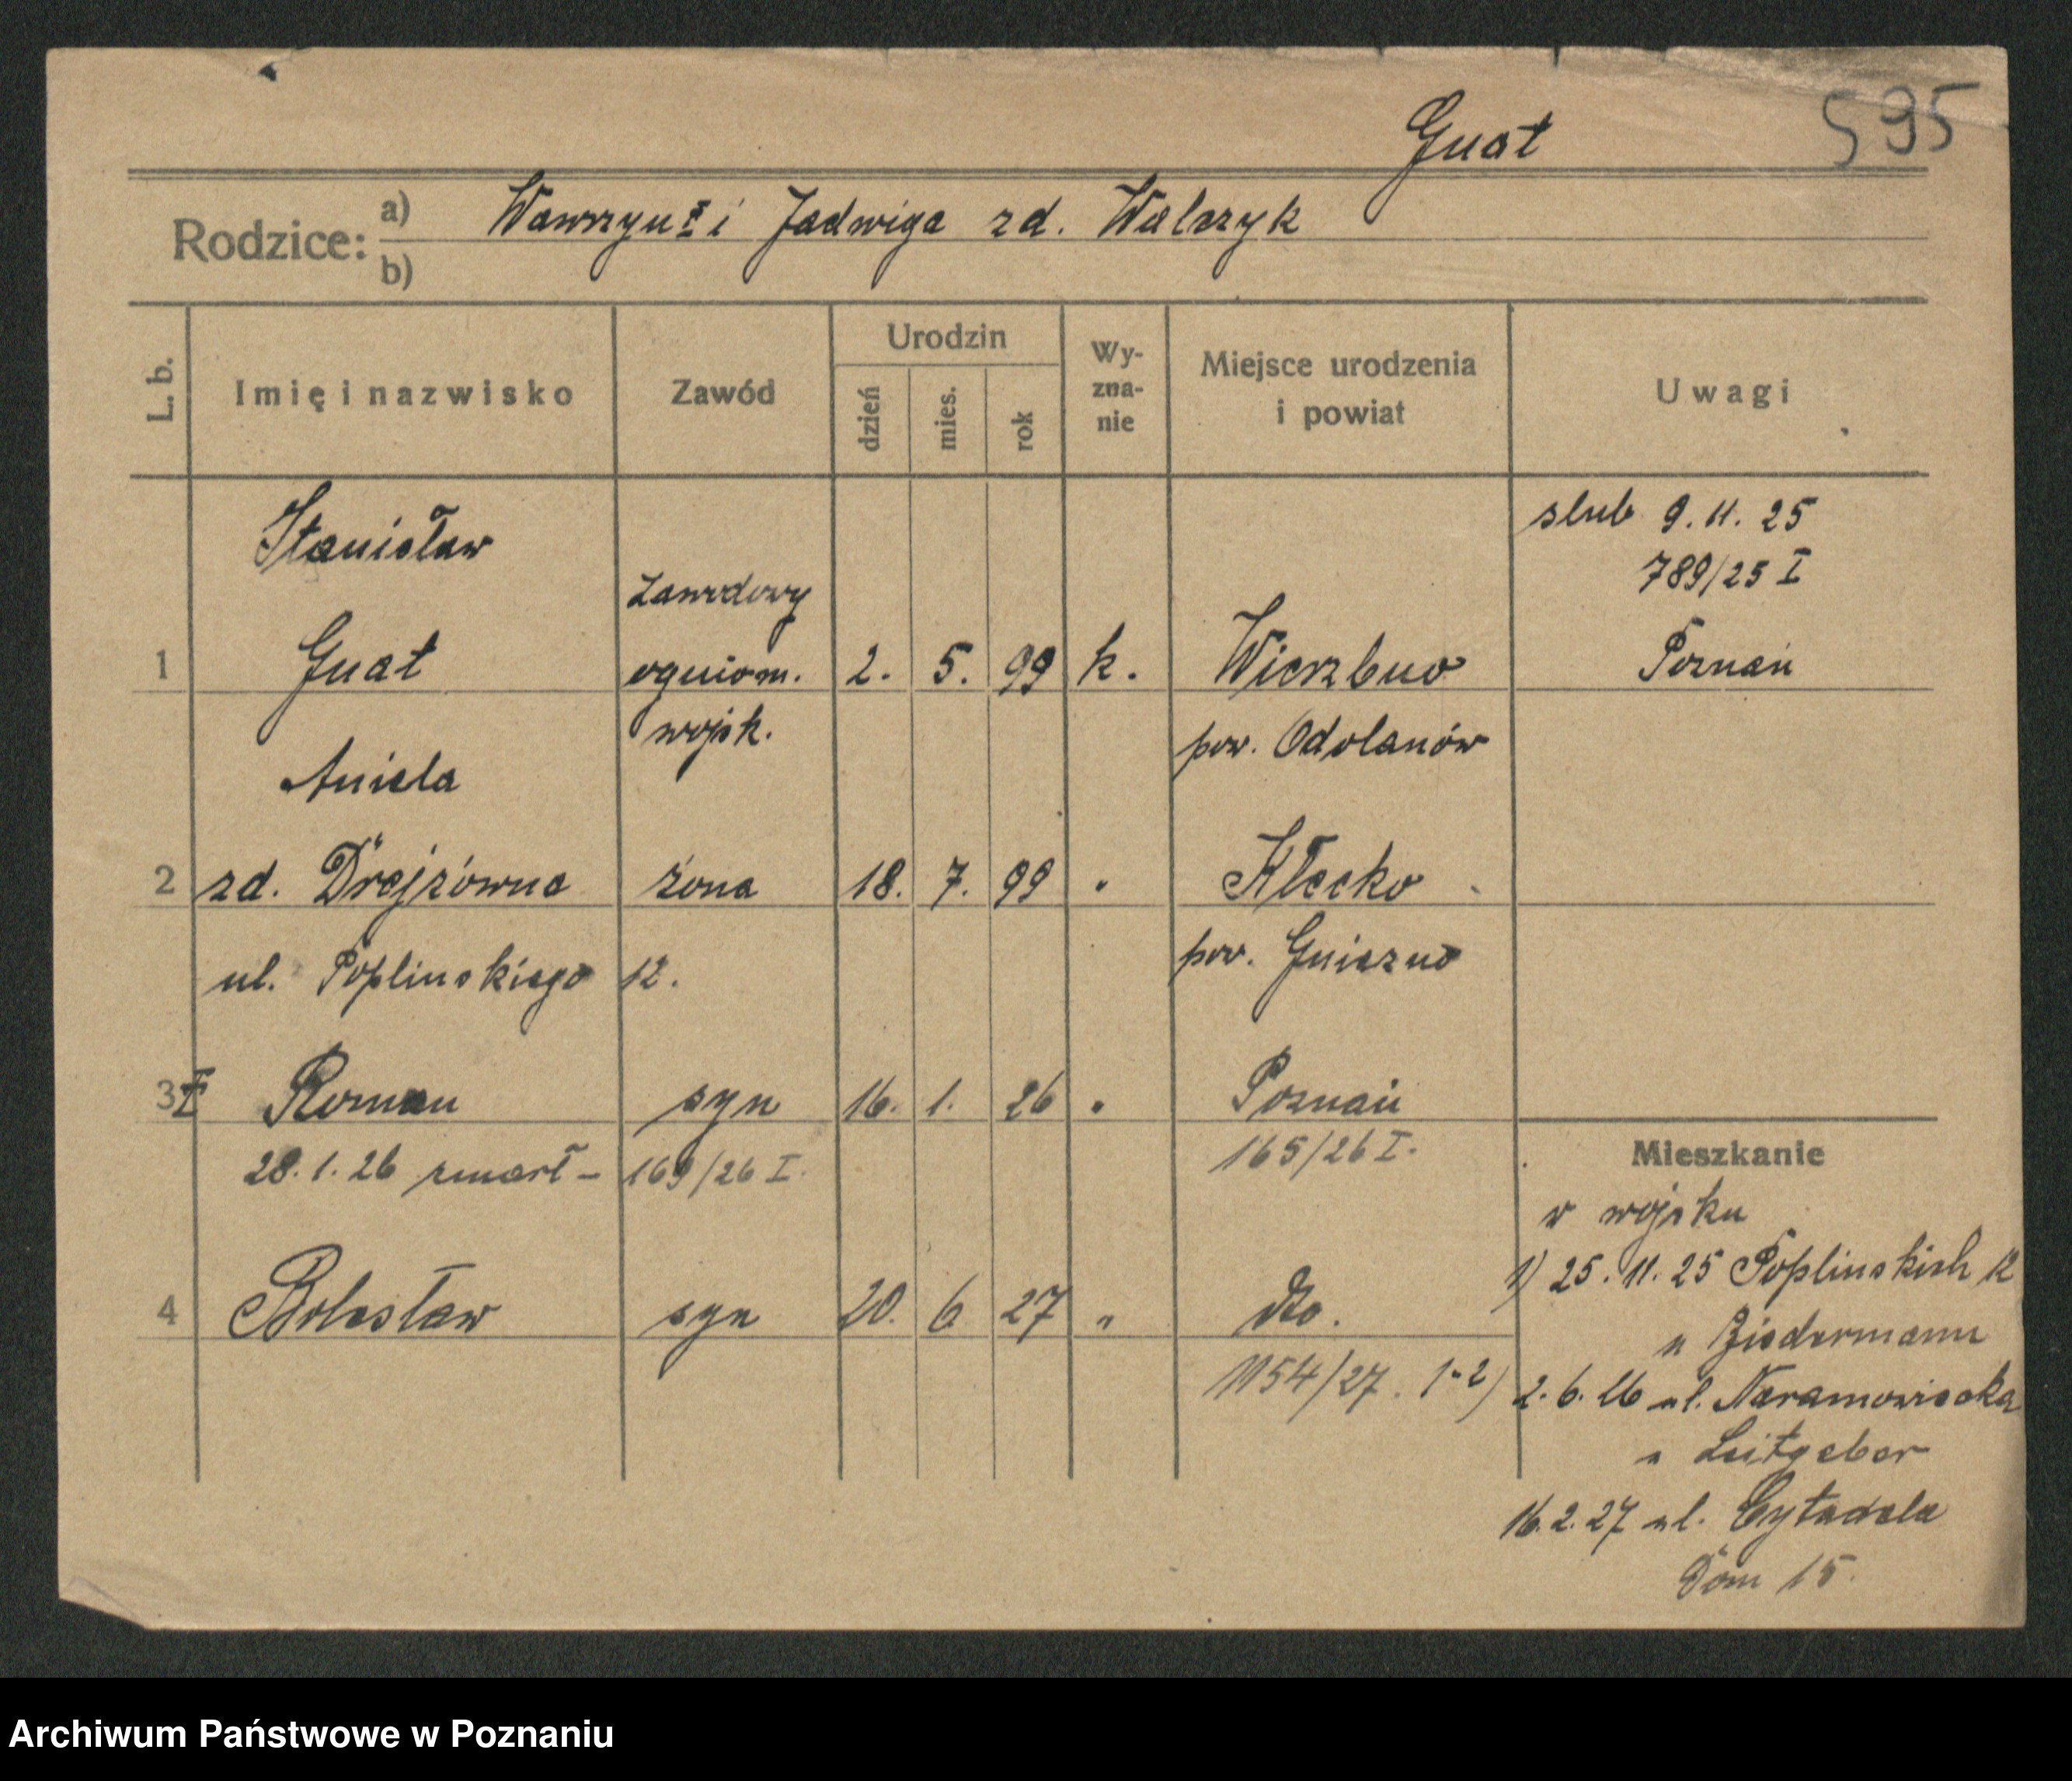 Gnat 595
Rodzice: a) Wawrzyn ‡ i Jadwiga zd. Walczyk
b)
L. b. Imię i nazwisko Zawód Urodzin dzień mies. rok Wy-zna-nie Miejsce urodzenia i powiat Uwagi
Stanisław ślub 9. 11. 25
zawodowy 789/25 I
1 Gnat ogniom. 2. 5. 99 k. Wierzbno Poznań
wojsk. pow. Odolanów
Aniela
2 zd. Drejzówna żona 18. 7. 99 " Kłecko
ul. Poplinskiego 12. pow. Gniezno
3 ‡ Roman syn 16. 1. 26 " Poznań
28. 1. 26 zmarł - 169/26 I. 165/26 I.
Mieszkanie
w wojsku
1) 25. 11. 25 Poplinskich 12
4 Bolesław syn 20. 6 27 " dto.
u Biedermann
1154/27. 1-2) 2. 6. 26 ul. Naramowicka
u Leitgeber
16. 2. 27 ul. Cytadela
Dom 15.
Archiwum Państwowe w Poznaniu